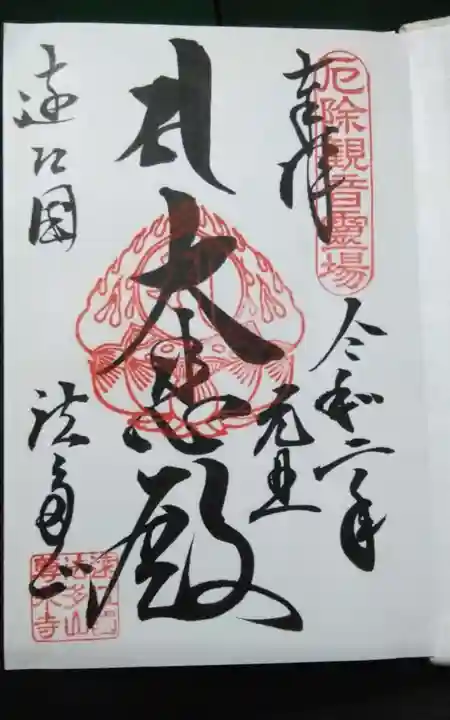 厄除観音霊場
奉拝
令和二年
元旦
札
大悲殿
遠江国
法多山
遠江国
法多山
尊永寺